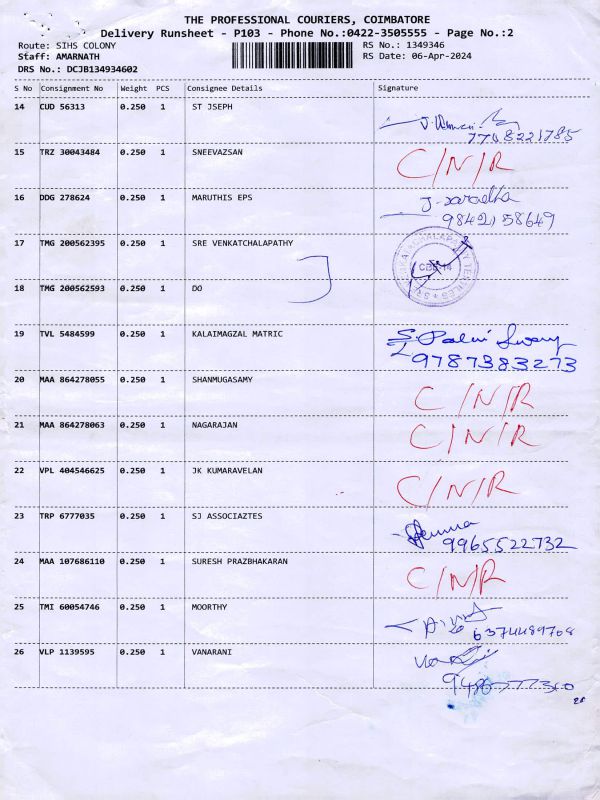 THE PROFESSIONAL COURIERS, COIMBATORE
Delivery Runsheet - P103 - Phone No.:0422-3505555 - Page No.:2
Route: SIHS COLONY RS No.: 1349346
Staff: AMARNATH RS Date: 06-Apr-2024
DRS No.: DCJB134934602
S No Consignment No Weight PCS Consignee Details Signature
14 CUD 56313 0.250 1 ST JSEPH
7708221785
15 TRZ 30043484 0.250 1 SNEEVAZSAN C/N/R
16 DDG 278624 0.250 1 MARUTHIS EPS J. Saradha
9842158649
17 TMG 200562395 0.250 1 SRE VENKATCHALAPATHY
CBE-14
18 TMG 200562593 0.250 1 DO
19 TVL 5484599 0.250 1 KALAIMAGZAL MATRIC
9787383273
20 MAA 864278055 0.250 1 SHANMUGASAMY C/N/R
21 MAA 864278063 0.250 1 NAGARAJAN C/N/R
22 VPL 404546625 0.250 1 JK KUMARAVELAN C/N/R
23 TRP 6777035 0.250 1 SJ ASSOCIAZTES
9965522732
24 MAA 107686110 0.250 1 SURESH PRAZBHAKARAN C/N/R
25 TMI 60054746 0.250 1 MOORTHY
6374489708
26 VLP 1139595 0.250 1 VANARANI